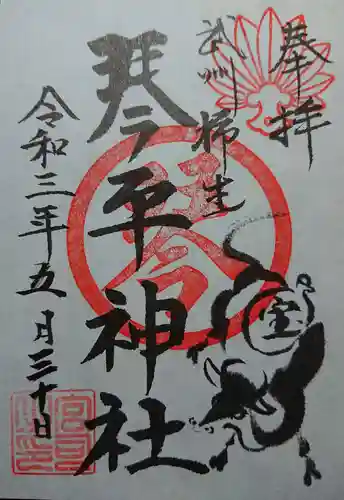 奉拝
武州柿生
琴平神社
令和三年五月三十日
宝